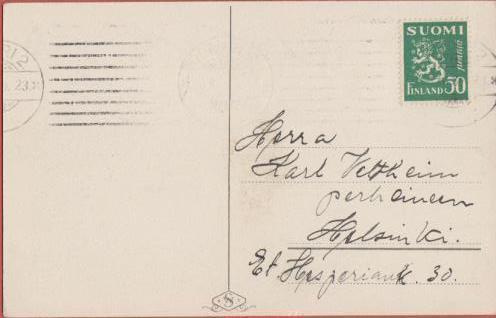 SUOMI
50 penniä
FINLAND
Herra
Karl Vettheim
perheineen
Helsinki.
Et. Hesperiank. 30.